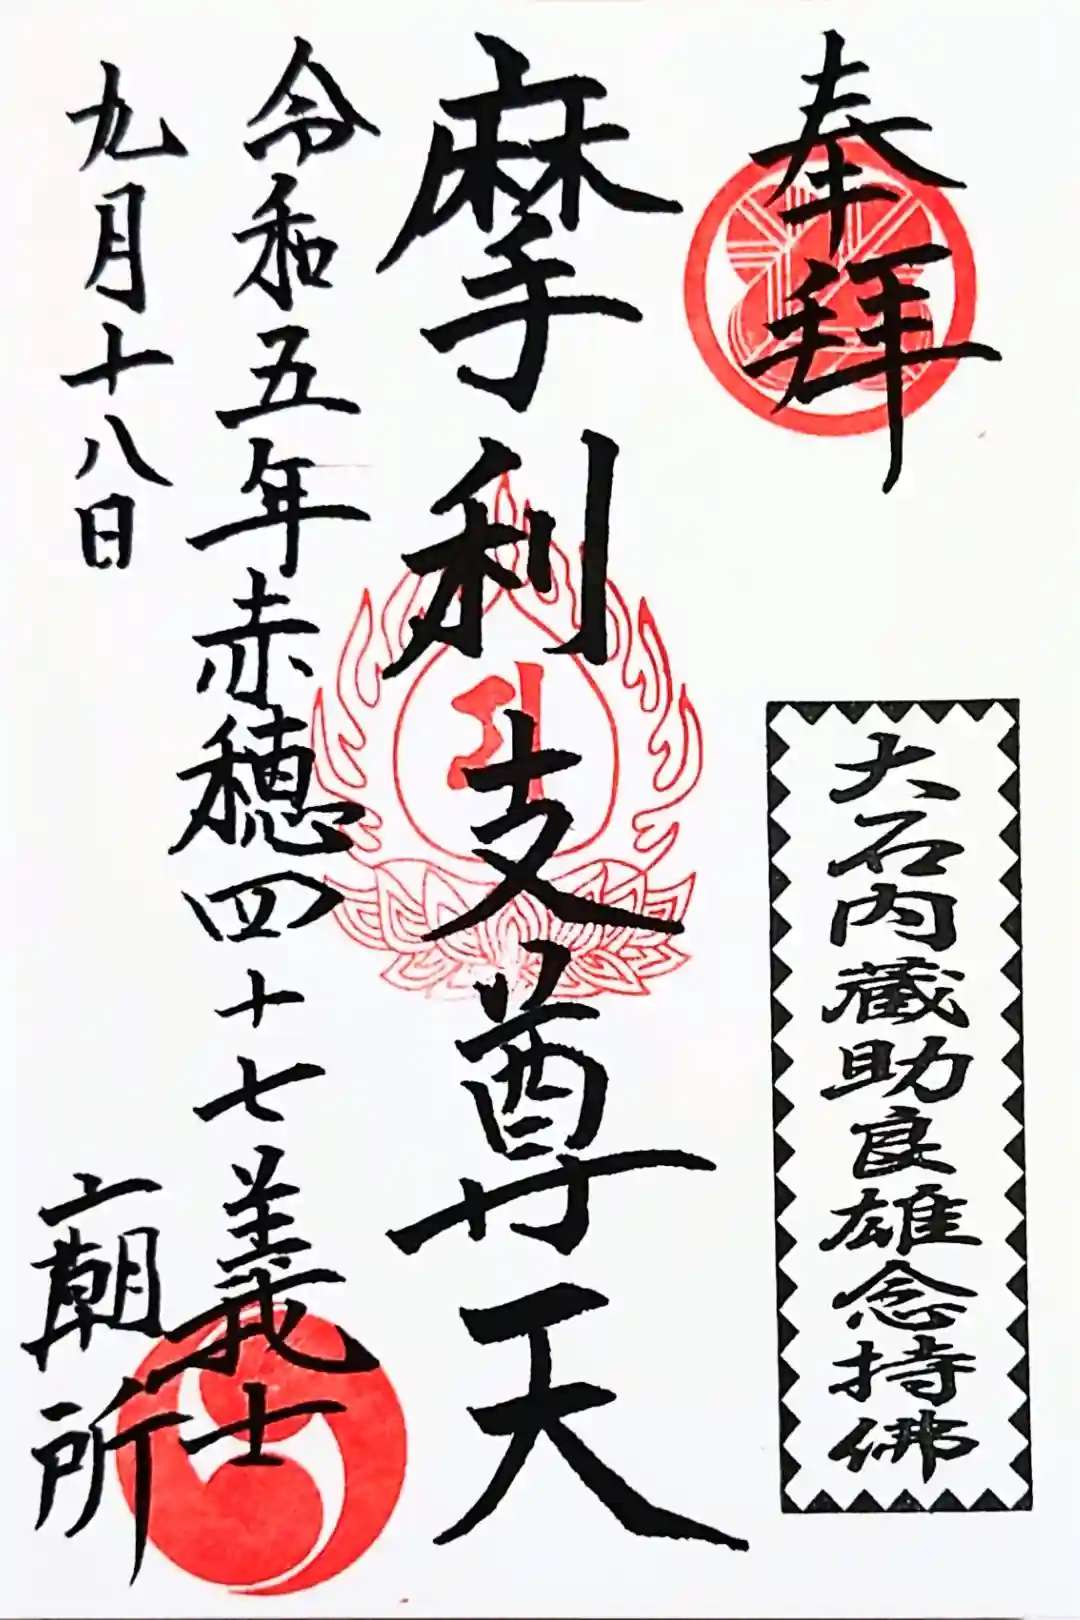 奉拝
大石内蔵助良雄念持佛
摩利支尊天
令和五年赤穂四十七義士
九月十八日
廟所